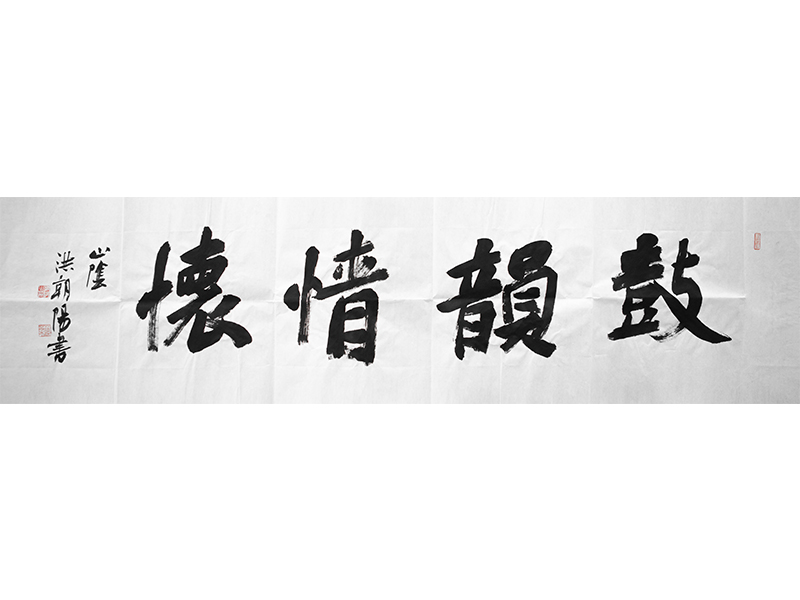 鼓韻情懷
山陰
洪朝陽書